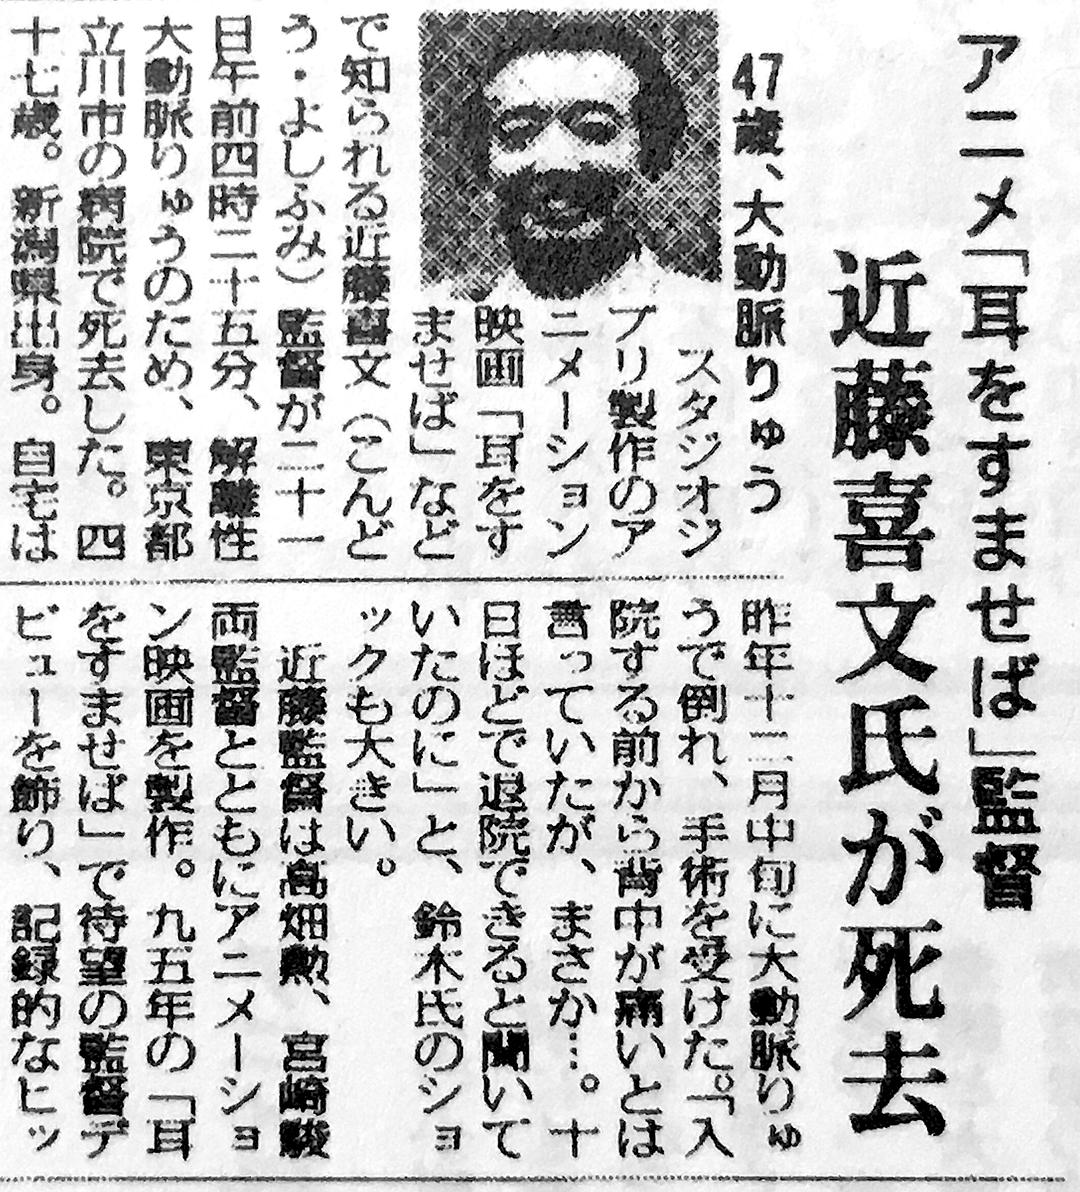 アニメ「耳をすませば」監督
近藤喜文氏が死去
47歳、大動脈りゅう
スタジオジ
ブリ製作のア
ニメーション
映画「耳をす
ませば」など
で知られる近藤喜文（こんど
う・よしふみ）監督が二十一
日午前四時二十五分、解離性
大動脈りゅうのため、東京都
立川市の病院で死去した。四
十七歳。新潟県出身。自宅は
昨年十二月中旬に大動脈りゅ
うで倒れ、手術を受けた。「入
院する前から背中が痛いとは
言っていたが、まさか…。十
日ほどで退院できると聞いて
いたのに」と、鈴木氏のショ
ックも大きい。
近藤監督は高畑勲、宮崎駿
両監督とともにアニメーショ
ン映画を製作。九五年の「耳
をすませば」で待望の監督デ
ビューを飾り、記録的なヒッ